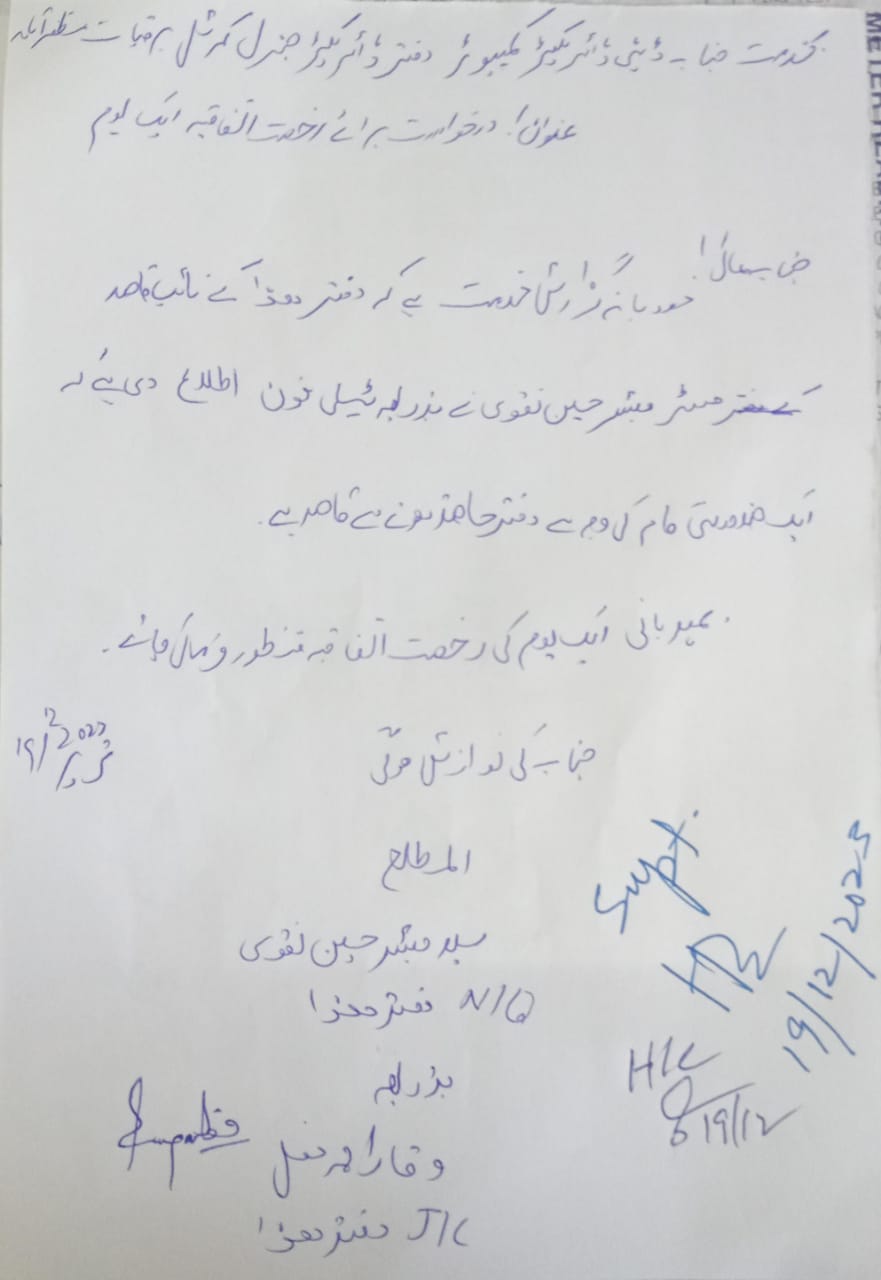 بخدمت جناب ڈپٹی ڈائریکٹر کمپیوٹر دفتر ڈائریکٹر جنرل کمرشل برقیات مظفرآباد
عنوان! درخواست برائے رخصت اتفاقیہ ایک یوم
جناب عالی!
مودبانہ گزارش خدمت ہے کہ دفتر ھذا کے نائب قاصد
کے مسٹر مبشر حسین نقوی نے بذریعہ ٹیلی فون اطلاع دی ہے کہ
ایک ضروری کام کی وجہ سے دفتر حاضر ہونے سے قاصر ہے۔
مہربانی ایک یوم کی رخصت اتفاقیہ منظور فرمائی جائے۔
جناب کی نوازش ہوگی
تحریر 19/12 2023
المطلع
سید مبشر حسین نقوی
N/Q دفتر ھذا
بذریعہ
وقار احمد مغل
J/C دفتر ھذا
Supt.
19/12/2023
H/C
19/12